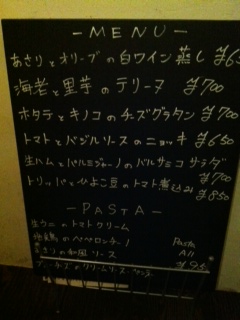 -MENU-
あさりとオリーブの白ワイン蒸し ¥65
海老と里芋のテリーヌ ¥700
ホタテとキノコのチーズグラタン ¥700
トマトとバジルソースのニョッキ ¥650
生ハムとパルミジャーノのバルサミコサラダ
¥700
トリッパとひよこ豆のトマト煮込み
¥850
-PASTA-
生ウニのトマトクリーム
のペペロンチーノ Pasta
の和風ソース All
チーズのクリームソース ¥95